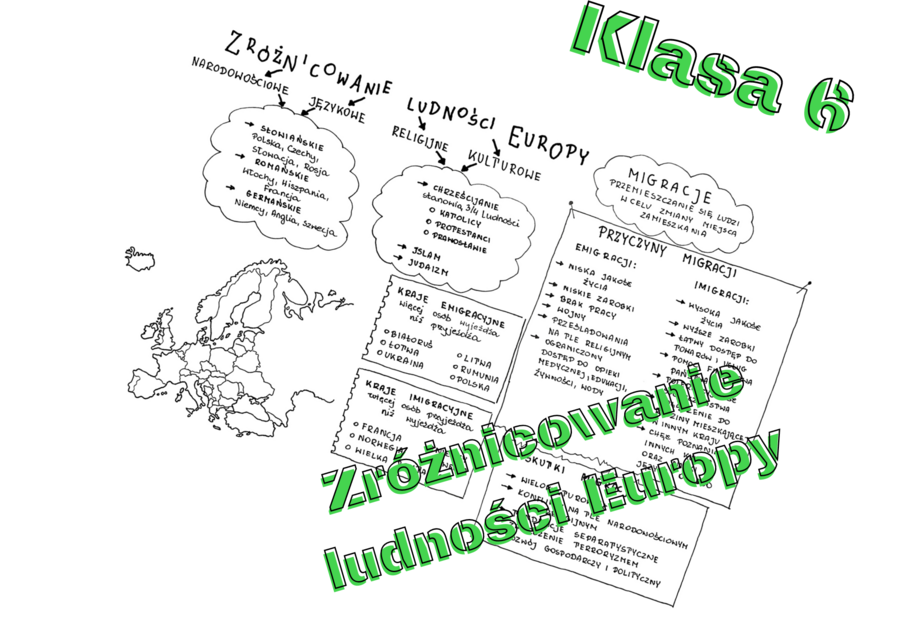 Klasa 6
ZRÓŻNICOWANIE LUDNOŚCI EUROPY
NARODOWOŚCIOWE
JĘZYKOWE
RELIGIJNE
KULTUROWE
SŁOWIAŃSKIE
Polska, Czechy,
Słowacja, Rosja
ROMAŃSKIE
Włochy, Hiszpania,
Francja
GERMAŃSKIE
Niemcy, Anglia, Szwecja
CHRZEŚCIJANIE
stanowią 3/4 ludności
KATOLICY
PROTESTANCI
PRAWOSŁAWIE
ISLAM
JUDAIZM
MIGRACJE
PRZEMIESZCZANIE SIĘ LUDZI
W CELU ZMIANY MIEJSCA
ZAMIESZKANIA
KRAJE EMIGRACYJNE
więcej osób wyjeżdża
niż przyjeżdża
BIAŁORUŚ
ŁOTWA
UKRAINA
LITWA
RUMUNIA
POLSKA
KRAJE IMIGRACYJNE
więcej osób przyjeżdża
niż wyjeżdża
FRANCJA
NORWEGIA
WIELKA
PRZYCZYNY MIGRACJI
EMIGRACJI:
NISKA JAKOŚĆ
ŻYCIA
NISKIE ZAROBKI
BRAK PRACY
WOJNY
PRZEŚLADOWANIA
NA TLE RELIGIJNYM
OGRANICZONY
DOSTĘP DO OPIEKI
MEDYCZNEJ, EDUKACJI,
ŻYWNOŚCI, WODY
IMIGRACJI:
WYSOKA JAKOŚĆ
ŻYCIA
WYŻSZE ZAROBKI
ŁATWY DOSTĘP DO
TOWARÓW I USŁUG
MIESZKAJĄCEJ
W INNYM KRAJU
CHĘĆ POZNANIA
INNYCH
ORAZ
SKUTKI
NA TLE NARODOWOŚCIOWYM
SEPARATYSTYCZNE
TERRORYZMEM
GOSPODARCZY I POLITYCZNY
Zróżnicowanie
ludności Europy